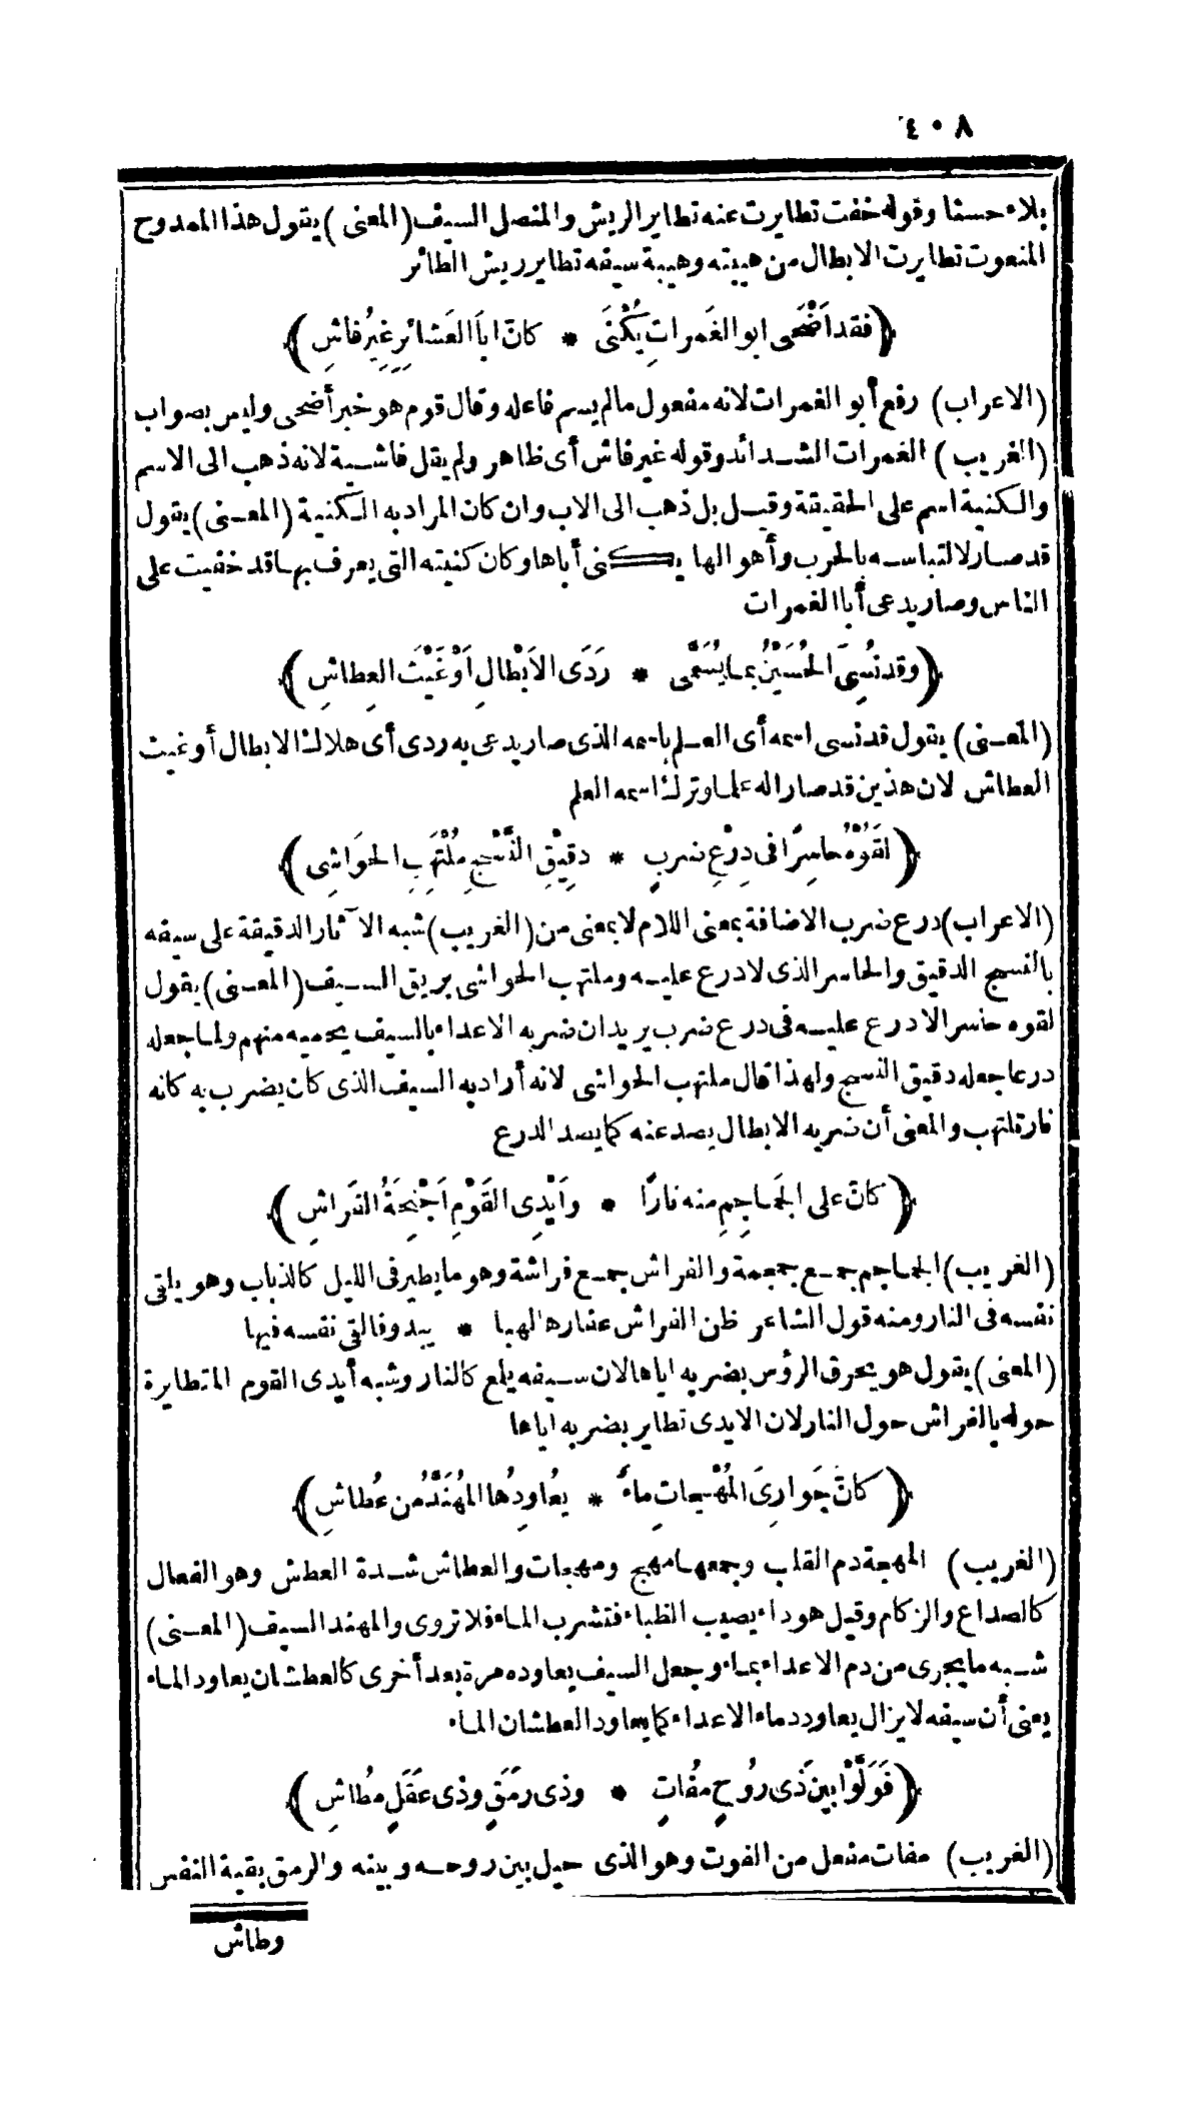 ٤٠٨
بلاء حسنا وقوله خفت تطايرت عنه تطاير الريش والمنصل السيف (المعنى) يقول هذا الممدوح
المنعوت تطايرت الابطال من هيبته وهيبة سيفه تطاير ريش الطائر
﴿فقد اَضْحَى ابو الغَمراتِ يُكْنَى * كانَ اباَ العَشائِرِ غيرُ فاشِ﴾
(الاعراب) رفع أبو الغمرات لانه مفعول مالم يسم فاعله وقال قوم هو خبر أضحى وليس بصواب
(الغريب) الغمرات الشدائد وقوله غير فاش أى ظاهر ولم يقل فاشية لانه ذهب الى الاسم
والكنية اسم على الحقيقة وقيل بل ذهب الى الاب وان كان المراد به الكنية (المعنى) يقول
قد صار لالتباسه بالحرب وأهوالها يكنى أباها وكان كنيته التى يعرف بها قد خفيت على
الناس وصار يدعى أبا الغمرات
﴿وقد نُسِىَ الحُسَيْنُ بما يُسَمَّى * رَدَى الاَبْطالِ اَوْ غَيْثَ العِطاشِ﴾
(المعنى) يقول قد نسى اسمه أى العلم باسمه الذى صار يدعى به ردى أى هلاك الابطال أو غيث
العطاش لان هذين قد صارا له علما وترك اسمه العلم
﴿لقَوْهُ حاسِرًا فى دِرْعِ ضربٍ * دقِيْقِ النَّسْجِ مُلْتَهِبِ الحَواشِى﴾
(الاعراب) درع ضرب الاضافة بمعنى اللام لا بمعنى من (الغريب) شبه الآثار الدقيقة على سيفه
بالنسج الدقيق والحاسر الذى لا درع عليه وملتهب الحواشى بريق السيف (المعنى) يقول
لقوه حاسرا لا درع عليه فى درع ضرب يريد ان ضربه الاعداء بالسيف يحميه منهم ولما جعله
درعا جعله دقيق النسج ولهذا قال ملتهب الحواشى لانه أراد به السيف الذى كان يضرب به كانه
نار تلتهب والمعنى أن ضربه الابطال يصد عنه كما يصد الدرع
﴿كانَ على الجَماجِمِ منه نارًا * واَيْدِى القَوْمِ اَجْنِحَةُ الفَراشِ﴾
(الغريب) الجماجم جمع جمجمة والفراش جمع فراشة وهو ما يطير فى الليل كالذباب وهو يلقى
نفسه فى النار ومنه قول الشاعر ظن الفراش عقارها لهبا * يبدو فالقى نفسه فيها
(المعنى) يقول هو يحرق الرؤس بضربه اياها لان سيفه يلمع كالنار وشبه أيدى القوم المتطايرة
حوله بالفراش حول النار لان الايدى تطاير بضربه اياها
﴿كانَ جَوارِىَ المُهْجاتِ ماءٌ * يعُاوِدُها المُهَنَّدُ من عُطاشِ﴾
(الغريب) المهجة دم القلب وجمعها مهج ومهجات والعطاش شدة العطش وهو الفعال
كالصداع والزكام وقيل هو داء يصيب الظباء فتشرب الماء فلا تروى والمهند السيف (المعنى)
شبه ما يجرى من دم الاعداء بماء وجعل السيف يعاوده مرة بعد أخرى كالعطشان يعاود الماء
يعنى أن سيفه لا يزال يعاود دماء الاعداء كما يعاود العطشان الماء
﴿فَوَلَّوْا بين ذى رُوحٍ مفُاتٍ * وذى رمَقٍ وذى عَقلٍ مُطاشِ﴾
(الغريب) مفات مفعل من الفوت وهو الذى حيل بين روحه وبينه والرمق بقية النفس
وطاش